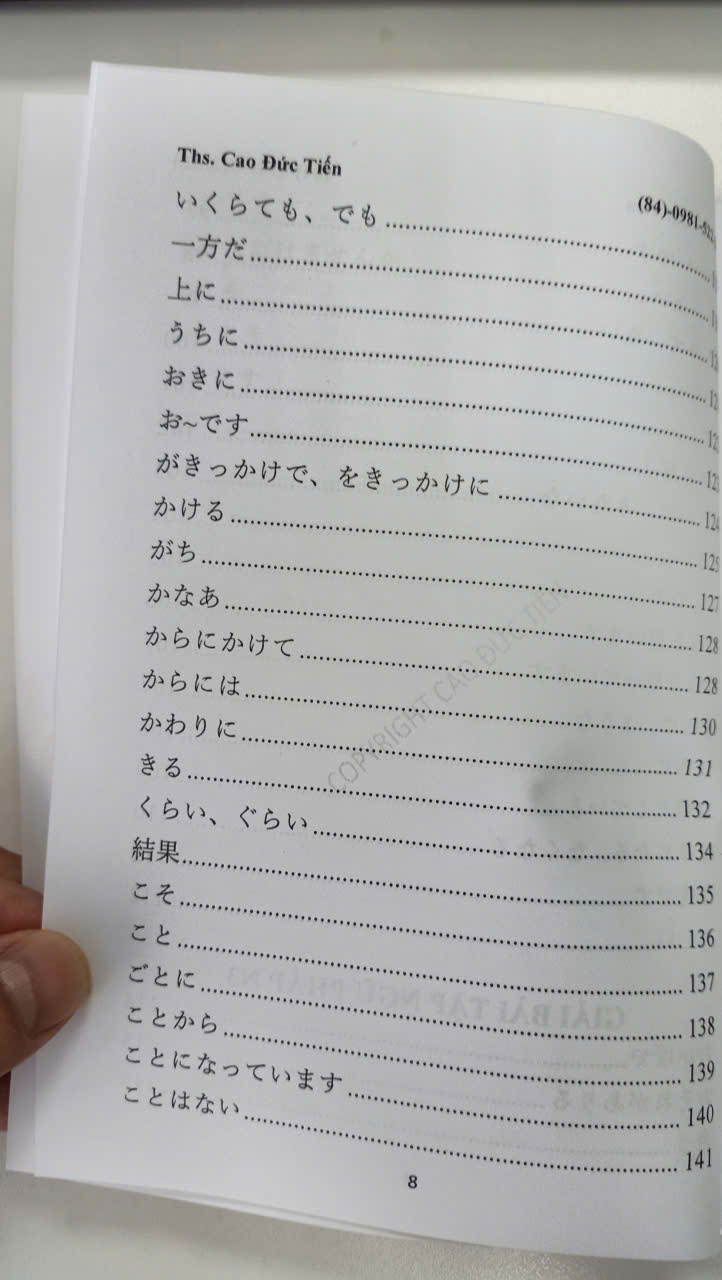 Ths. Cao Đức Tiến
(84)-0981-
いくらても、でも
一方だ
上に
うちに
おきに
お~です 123
がきっかけで、をきっかけに 124
かける 125
がち 127
かなあ 128
からにかけて 128
からには 130
かわりに 131
きる 132
くらい、ぐらい 134
結果 135
こそ 136
こと 137
ごとに 138
ことから 139
ことになっています 140
ことはない 141
COPYRIGHT CAO ĐỨC TIẾN
8